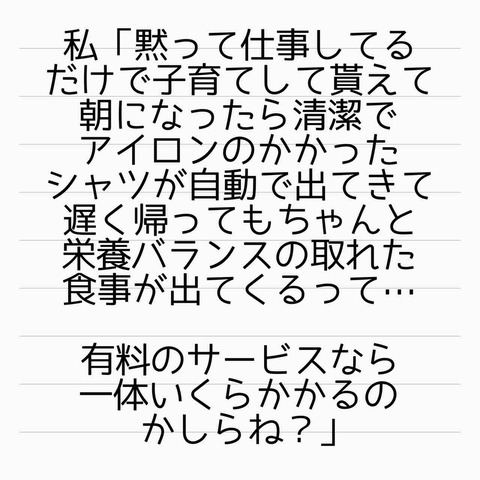 私「黙って仕事してる
だけで子育てして貰えて
朝になったら清潔で
アイロンのかかった
シャツが自動で出てきて
遅く帰ってもちゃんと
栄養バランスの取れた
食事が出てくるって…
有料のサービスなら
一体いくらかかるの
かしらね？」